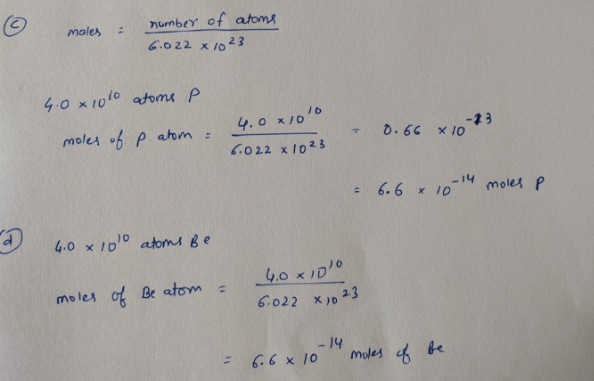 (c) moles = number of atoms / 6.022 x 10^23
4.0 x 10^10 atoms P
moles of P atom = 4.0 x 10^10 / 6.022 x 10^23 = 0.66 x 10^-13
= 6.6 x 10^-14 moles P
(d) 4.0 x 10^10 atoms Be
moles of Be atom = 4.0 x 10^10 / 6.022 x 10^23
= 6.6 x 10^-14 moles of Be